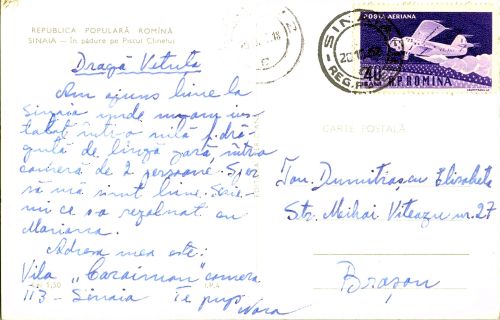 REPUBLICA POPULARĂ ROMÎNĂ
SINAIA — În pădure pe Piscul Cîinelui
Dragă Vetuta
Am ajuns bine la
Sinaia unde m-am ins-
talat într-o vilă f. dră-
guță de lîngă gară, într-o
cameră de 2 persoane. Sper
să mă simt bine. Scrie-
mi ce s-a rezolvat cu
Mariana.
Adresa mea este:
Vila „Caraiman" camera
113 – Sinaia Te pup
Nora
I.P.4
SINAIA
REG.
POSTA AERIANA
40
R.P.ROMINA
CARTE POSTALĂ
Tov. Dumitrașcu Elisabeta
Str. Mihai Viteazu nr. 27
Brașov